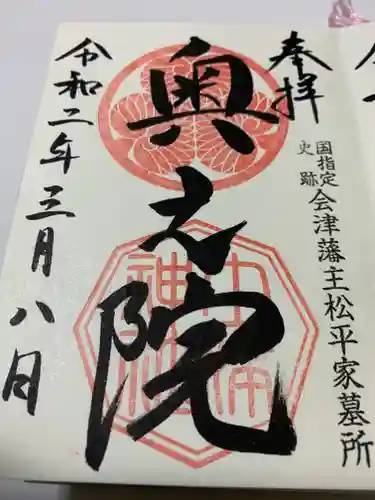 奉拝
国指定
史跡
会津藩主松平家墓所
奥之院
土津
神社
令和二年三月八日